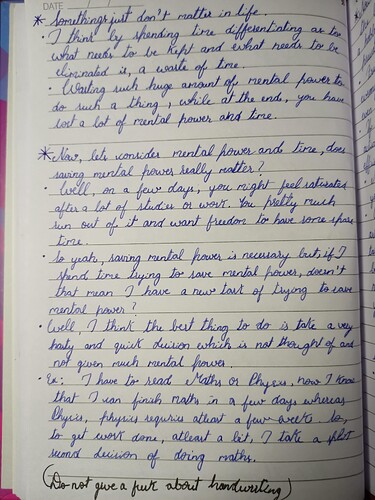 DATE
* Somethings just don't matter in life.
• I think by spending time differentiating as to
what needs to be kept and what needs to be
eliminated is, a waste of time.
• Wasting such huge amount of mental power to
do such a thing, while at the ends, you have
lost a lot of mental power and time.
* Now, lets consider mental power and time, does
saving mental power really matter?
• Well, on a few days, you might feel saturated
after a lot of studies or work. You pretty much
run out of it and want freedom to have some spare
time.
• So yeah, saving mental power is necessary but if I
spend time trying to save mental power, doesn't
that mean I have a new task of trying to save
mental power?
• Well, I think the best thing to do is take a very
hasty and quick decision which is not thought of and
not given much mental power.
• Ex: I have to read Maths or Physics, now I know
that I can finish maths in a few days whereas
Physics, physics requries atleast a few weeks. So,
to get work done, atleast a bit, I take a split
second decision of doing maths.
(Do not give a fuck about handwriting)